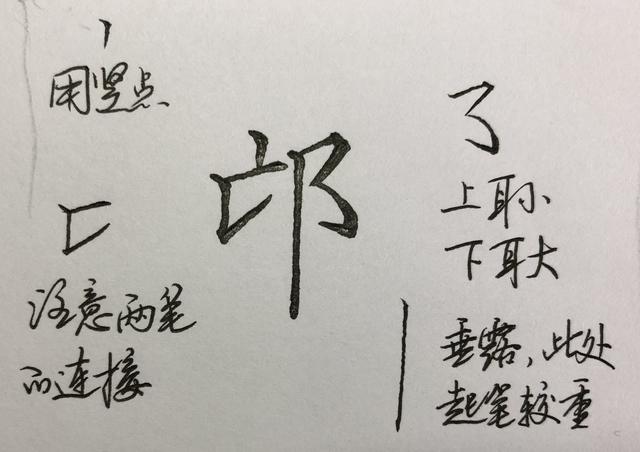 用竖点
邙
上耳小
下耳大
注意两笔
的连接
垂露,此处
起笔较重